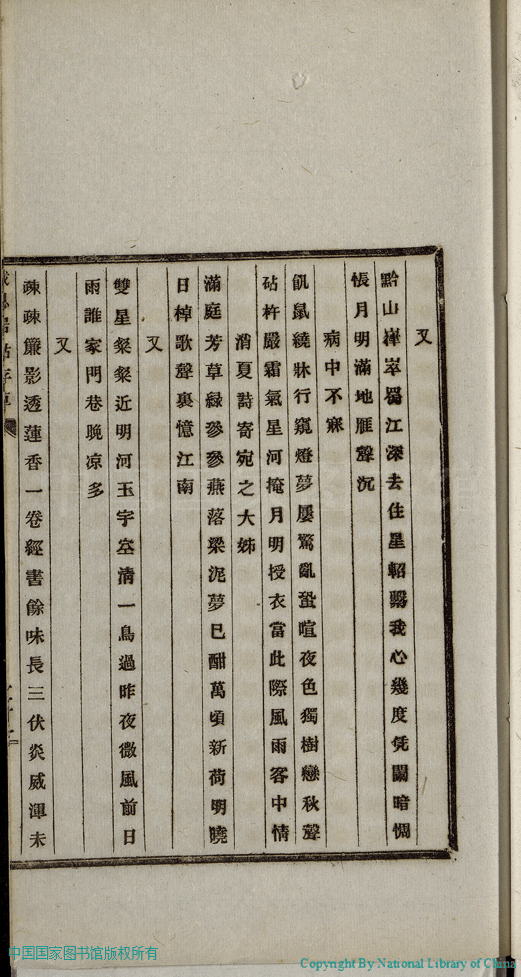 又
黔山嵂崒蜀江深去住星軺繫我心幾度凭闌暗惆
悵月明滿地雁聲沉
病中不寐
飢鼠繞牀行窺燈夢屢驚亂蛩喧夜色獨樹戀秋聲
砧杵嚴霜氣星河掩月明授衣當此際風雨客中情
消夏詩寄宛之大姊
滿庭芳草綠毿毿燕落梁泥夢已酣萬頃新荷明曉
日棹歌聲裏憶江南
又
雙星粲粲近明河玉宇空清一鳥過昨夜微風前日
雨誰家門巷晚凉多
又
疎疎簾影透蓮香一卷經書餘味長三伏炎威渾未
中国国家图书馆版权所有
Copyright By National Library of China